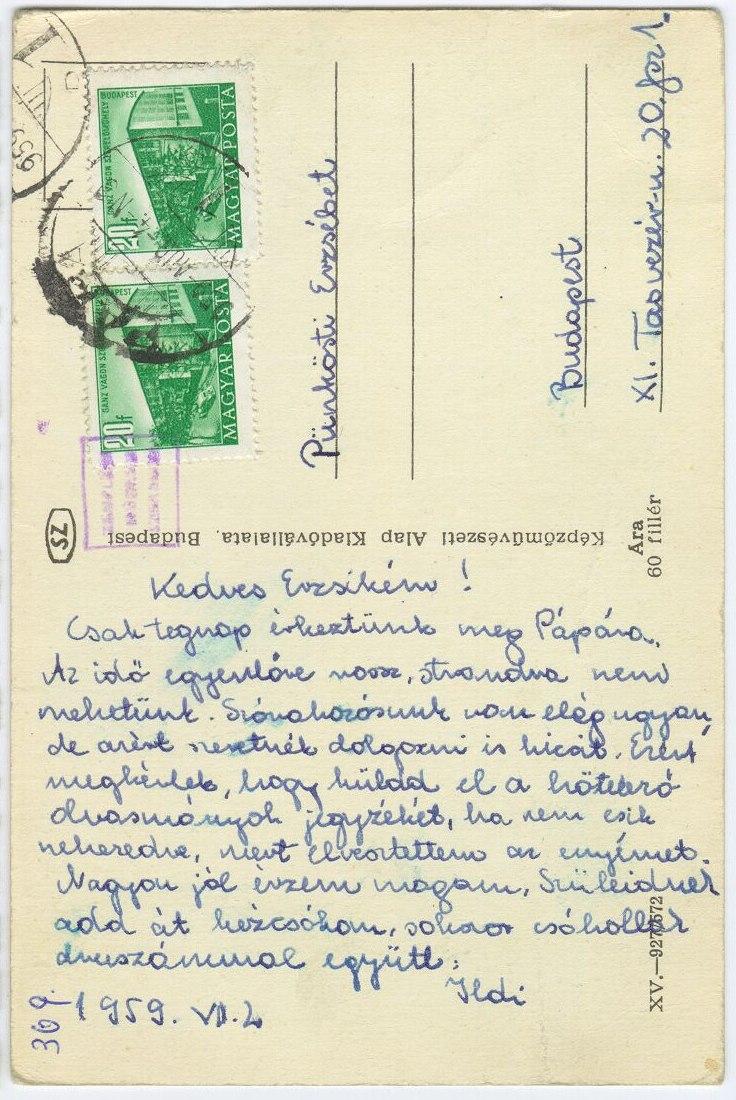 Kedves Erzsikém!
Csak tegnap érkeztünk meg Pápára.
Az idő egyenlőre rossz, strandra nem
mehetünk. Szórakozásunk van elég ugyan,
de azért szeretnék dolgozni is kicsit. Ezért
megkérlek, hogy küldd el a kötelező
olvasmányok jegyzékét, ha nem esik
nehezedre, mert elvesztettem az enyémet.
Nagyon jól érzem magam, Szüleidnek
add át kézcsókom, sokszor csókollak
együtt:
Ildi
1959. VII. 2
369.
Pünkösti Erzsébet
Budapest
XI. Tasvezér-u. 20. fsz 1.
Képzőművészeti Alap Kiadóvállalata, Budapest
Ára
60 fillér
XV.—927/572
SZ
MAGYAR POSTA
GANZ VAGON SZERELŐMŰHELY BUDAPEST
20f
MAGYAR POSTA
GANZ VAGON SZ BUDAPEST
20f
959